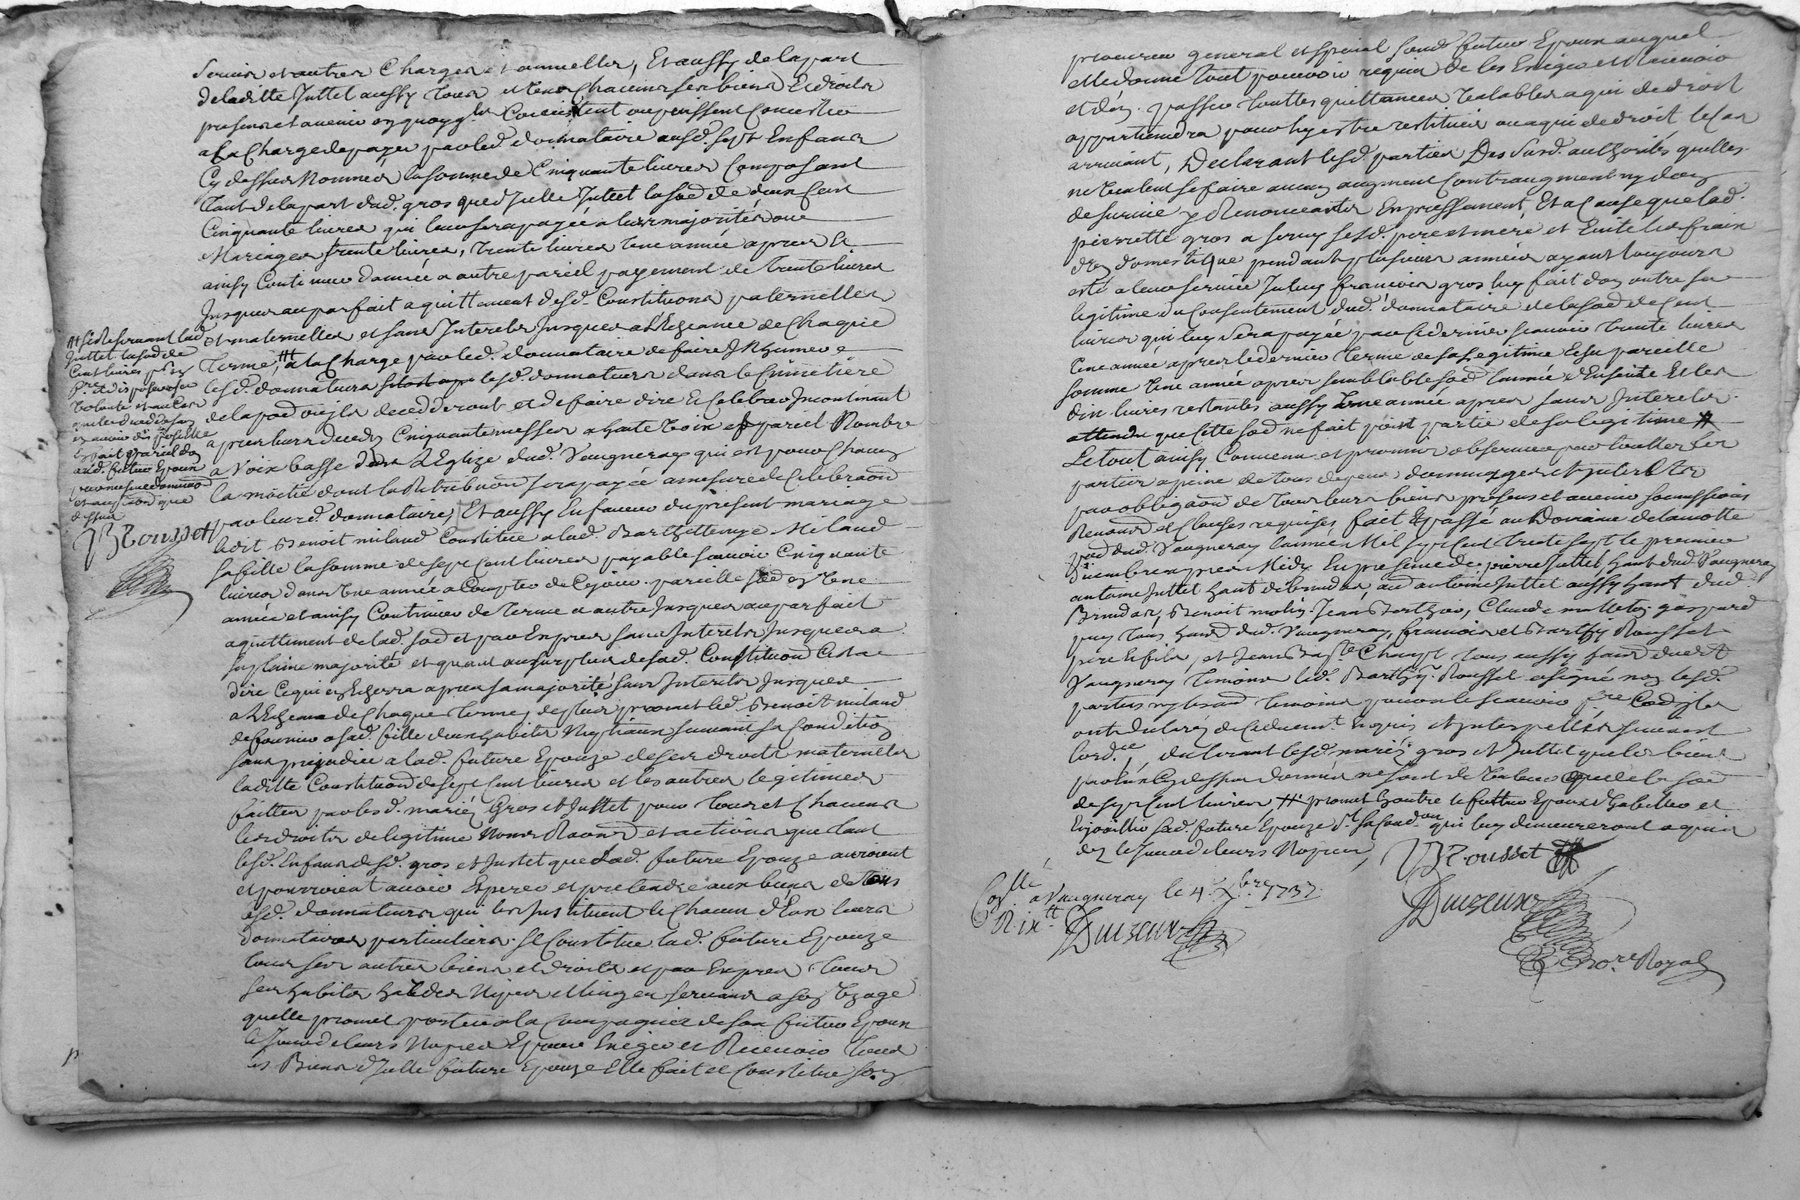 Servis et autres Charges et annuelles, Et aussy de la part
de laditte Juttet aussy tous et un Chacuns ses biens Et droits
presens et avenir en quoy qls Consistent ou puissent Consister
a la Charge de payer par led. donnataire ausd. sept Enfans
Cy dessus Nommés la somme de Cinquante livres Composant
tant de la part dud. gros que d'Jcelle Juttet la sod de deux Cent
Cinquante livres qui leur sera payée a leurs majorités ou
Mariages trente livres, trente livres Une année apres Et
ainsy Continuer d'année a autre pareil payement de trente livres
Jusques au parfait aquittement desd. Constitutions paternelles
et maternelles et sans Jnterets Jusques a l'Echeance de Chaque
terme, a la Charge par led. donnataire de faire Jnhumer
lesd. donnateurs lesd. donnateurs dans le Cimetiere
de la pad ou ils decedderont et de faire dire et Celebrer Jncontinant
apres leurs deceds Cinquante messes a haute Voix et pareil Nombre
a Voix basse dans l'Eglize dud. Vaugneray qui est pour Chacun
la moitié dont la Retribuõn sera payée a mesure de Celebraõn
par leurd. donnataire, Et aussy En faveur du present mariage
ledit Benoit milaud Constitue a lad. Barthelemye Milaud
sa fille la somme de sept Cent livres payable sçavoir Cinquante
livres dans Une année a Compter de Ce jour. pareille sod en Une
année et ainsy Continuer de terme a autre Jusques au parfait
aquittement de lad. sod et par Expres sans Jnterets Jusques a
sa plaine majorité et quant au surplus de sad. Constituõn C'est a
dire Ce qui en Echerra apres sa majorité sans Jnterets Jusques
a l'Echeance de Chaque terme, de plus promet led. Benoit milaud
de fournir a sad. fille d'un habits Nuptiaux suivant sa Condition
sans prejudice a lad. future Epouze de ses droits maternels
laditte Constituõn de sept Cent livres et les autres legitimes
faittes par lesd. mariés Gros et Juttet pour tous et Chacuns
les droits de legitime Noms Raisons et actions que tant
lesd. Enfans desd. gros et Juttet que lad. future Epouze auroient
et pourroient avoir Esperer et pretendre aux biens de tous
lesd. donnateurs qui les Jnstituent et Chacun d'Eux leurs
donnataires particuliers. se Constitue lad. future Epouze
tous ses autres biens et droits et par Expres tous
ses habits hardes Nipes et linges servans a son Uzage
quelle promet porter a la Compagnie de son futur Epoux
le Jour de leurs Noces Epour Exiger et Recevoir tous
les Biens d'Jcelle future Epouze Elle fait et Constitue son
Et se reservant lad.
Juttet la sod de
Cent livres pour en
disposer a sa
Volonté et au Cas
quelle decede sans
en avoir disposé elle
En fait pareil don
aud. futur Epoux
par mesme donnaõn
et aux Cond que
dessus
BRousset
procureur general et special sond. futur Epoux auquel
elle donne tout pouvoir requis de les Exiger et Recevoir
et d'en passer toutes quittances Valables a qui de droit
appartiendra pour luy estre restitués ou a qui de droit le Cas
arrivant, Declarant lesd. parties Des susd. authorités quelles
ne Veulent se faire aucun augment Contraugment ny don
de survie y Renonceantes Expressement, Et a Cause que lad.
pierrette gros a servy sesd. pere et mere et Evité les frais
d'un domestique pendant plusieurs années ayant toujours
esté a leur service Jceluy françois gros luy fait don outre sa
legitime du Consentement dud. donnataire de la sod de Cent
livres qui luy sera payée par Ce dernier sçavoir trente livres
Une année apres le dernier terme de sa legitime Et sa pareille
somme Une année apres semblable sod l'année d'Ensuite Et les
dix livres restantes aussy Une année apres sans Jnterets
attendu que Cette sod ne fait point partie de sa legitime
Le tout ainsy Convenu et promis observer par toutes les
parties a peine de tous depens dommages et Jnterets
par obligaõn de tous leurs biens presens et avenir soumissions
Renonõn et Clauses requises, fait Et passé au Domaine de la motte
pad dud. Vaugneray l'année Mil sept Cent Trente sept le premier
Decembre apres Midy En presence de pierre Juttet hant dud. Vaugneray
antoine Juttet hant de brindas, aud antoine Juttet aussy hant dud.
Brindas, Benoit molin, Jean Berthier, Claude malleton gaspard
puy tous hand dud. Vaugneray, françois et Barthy Rousset
pere et fils, et Jean Bapte Chanut, tous aussy hand dudit
Vaugneray temoins led. Barthy Rousset a signé non lesd.
parties ny les aud temoins pour ne le sçavoir faire Comme ils
ont declaré de Ce duemt Enquis et Jnterpellés suivant
lordce declarant lesd. mariés gros et Juttet que les biens
par eux Cy dessus donnés ne sont de Valeur que de la sod
de sept Cent livres promet Encoutre le futur Epoux d'habiller et
Enjoailler sad. future Epouze st sa Condon qui luy demeureront aquis
dez le Jour de leurs Noces
BRousset
Duizeux
nore Royal
Conllé a Vaugneray le 4e Xbre 1737.
R. ix tt
Duizeux